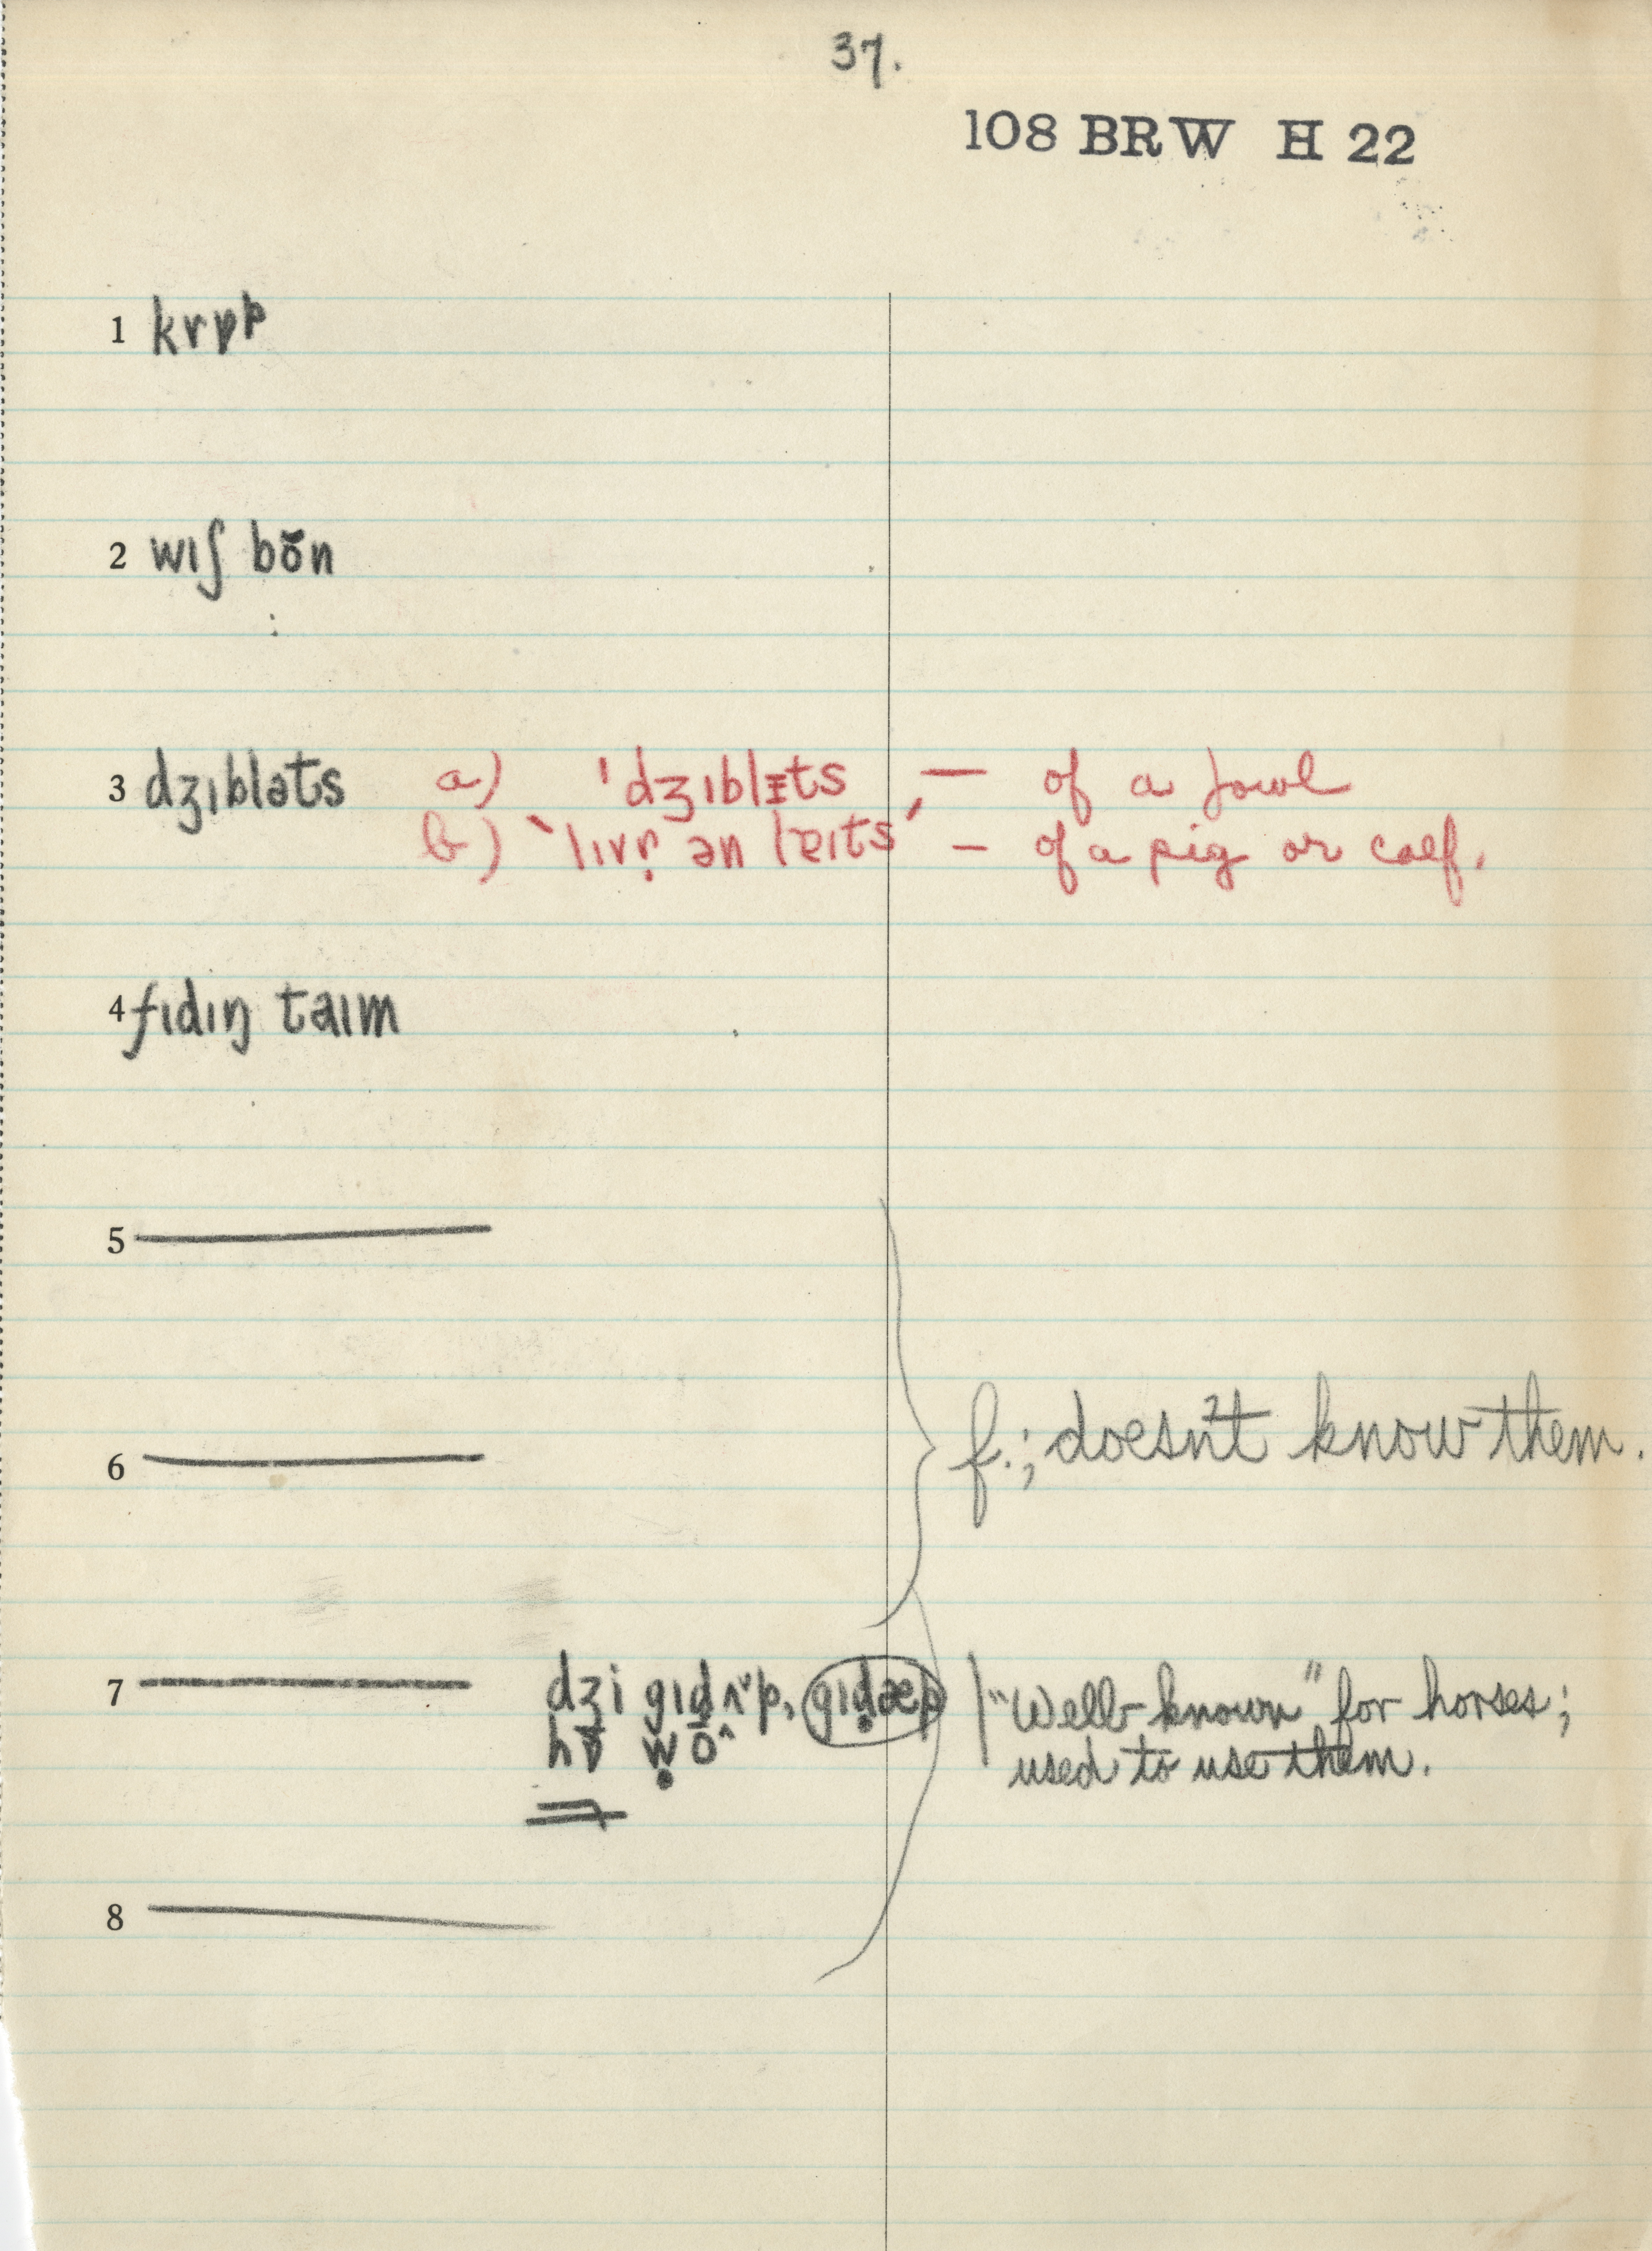 37.
108 BRW H 22
1 krɒp
2 wɪʃ bŏn
3 dʒɪbləts a) ˈdʒɪblɪ̵ts — of a fowl
b) ‘lɪvr̩ ən lɐɪts’ — of a pig or calf.
4 fɪdɪŋ taɪm
5
6 f.; doesn't know them.
7 dʒi gɪd̥ʌ˅p, gɪd̥æp "Well-known" for horses;
used to use them.
8